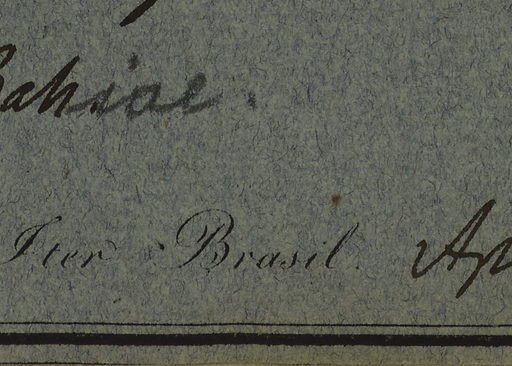 Bahiae.
Iter Brasil.